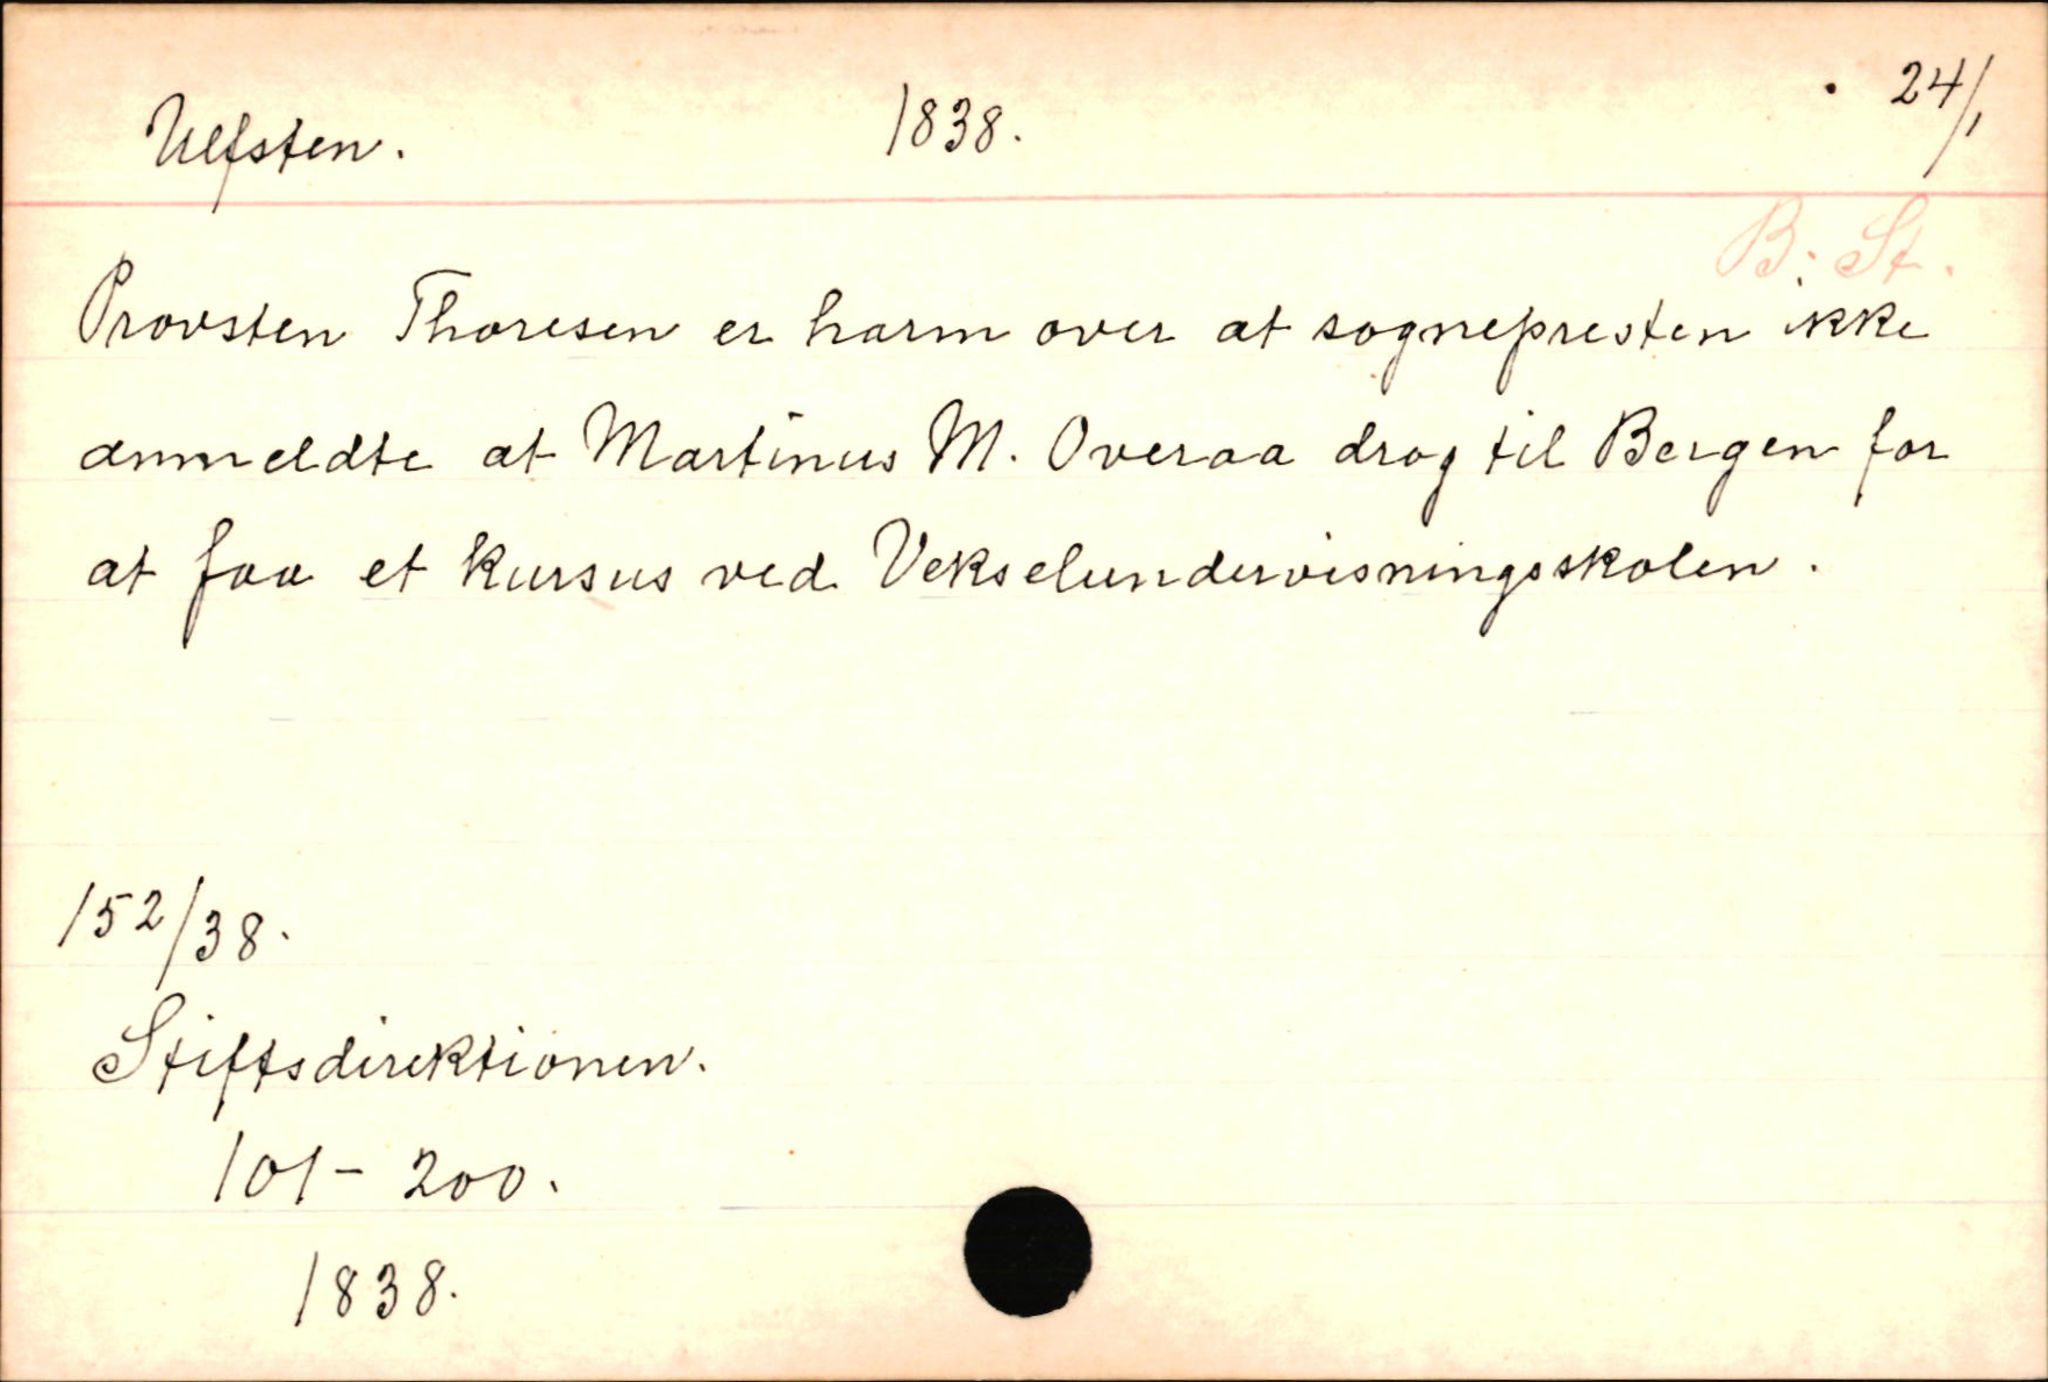 Ulfsten. 1838. 24/1
B. St.
Provsten Thoresen er harm over at sognepresten ikke
anmeldte at Martinus M. Overaa drog til Bergen for
at faa et kursus ved Vekselundervisningsskolen.
152/38.
Stiftsdirektionen.
101-200.
1838.